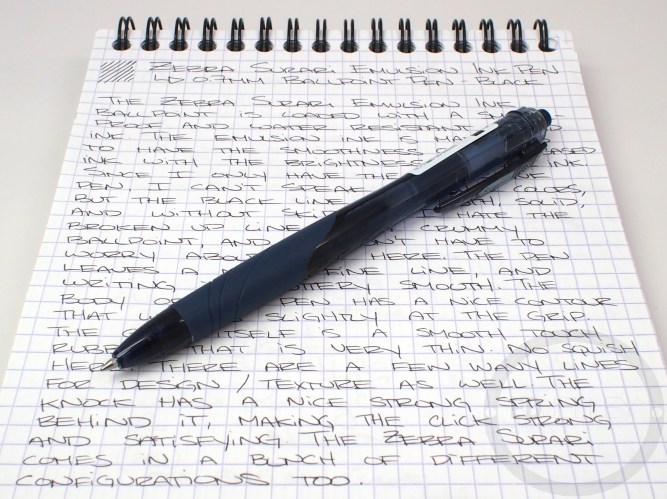 ZEBRA SURARI EMULSION INK PEN
↳ 0.7MM BALLPOINT PEN - BLACK
THE ZEBRA SURARI EMULSION INK
BALLPOINT IS LOADED WITH A
PROOF AND WATER RESISTANT
INK. THE EMULSION INK IS
TO HAVE THE SMOOTHNESS
INK WITH THE BRIGHTNESS INK.
SINCE I ONLY HAVE THE
PEN. I CAN'T SPEAK COLORS,
BUT THE BLACK LINE SOLID,
AND WITHOUT I HATE THE
BROKEN UP LINE CRUMMY
BALLPOINT, AND HAVE TO
WORRY HERE. THE PEN
LEAVES A FINE LINE, AND
WRITING SMOOTH. THE
BODY PEN HAS A NICE CONTOUR
THAT SLIGHTLY AT THE GRIP.
THE ITSELF IS A SMOOTH TOUCH
THAT IS VERY THIN. NO SQUISH
HERE. THERE ARE A FEW WAVY LINES
FOR DESIGN / TEXTURE AS WELL. THE
KNOCK HAS A NICE STRONG SPRING
BEHIND IT, MAKING THE CLICK STRONG
AND SATISFYING. THE ZEBRA SURARI
COMES IN A BUNCH OF DIFFERENT
CONFIGURATIONS TOO.